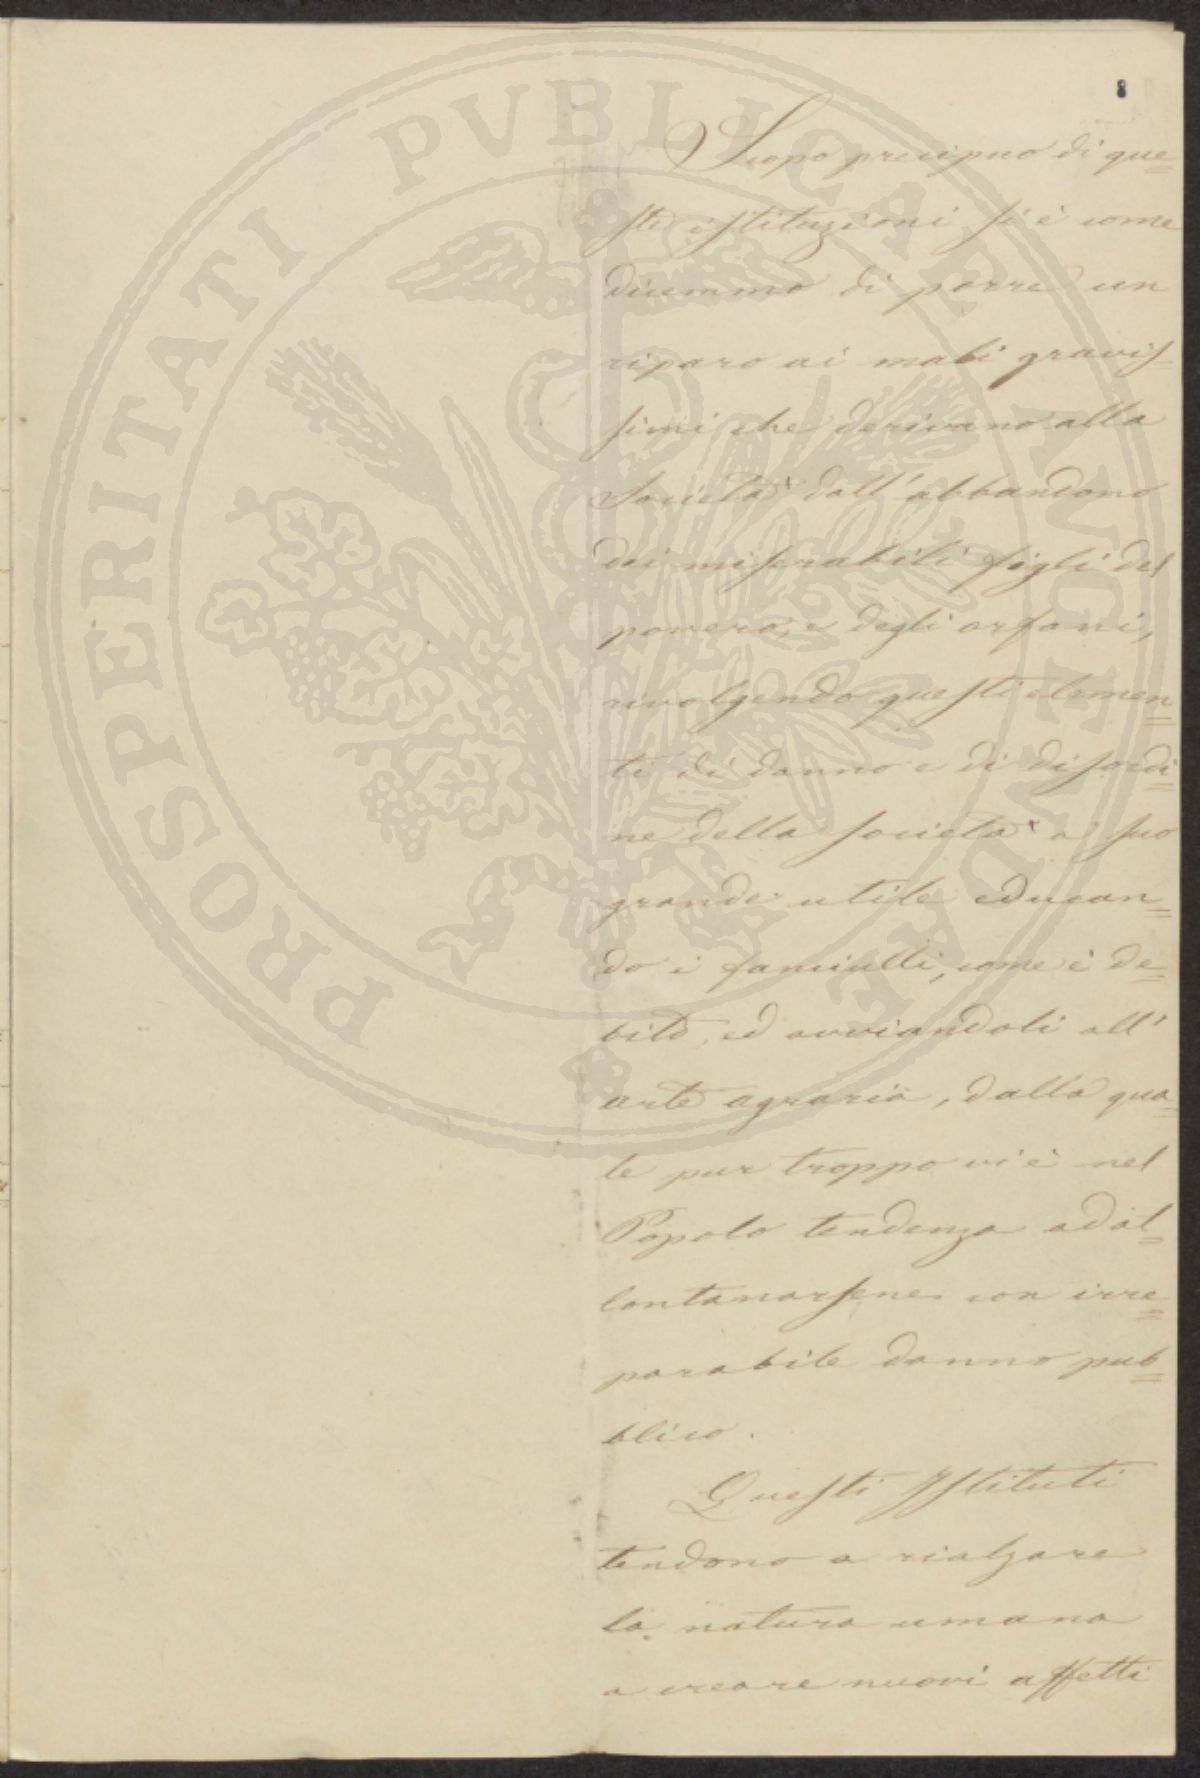 8
Scopo precipuo di que=
ste istituzioni si è come
dicemmo di porre un
riparo ai mali gravis=
simi che derivano alla
Società dall'abbandono
dei miserabili figli del
povero, e degli orfani,
rivolgendo questi elemen=
ti di danno e di disordi=
ne della società a suo
grande utile educan=
do i fanciulli, come è de=
bito, ed avviandoli all'
arte agraria, dalla qua=
le pur troppo vi è nel
Popolo tendenza ad al=
lontanarsene con irre=
parabile danno pub=
blico.
Questi Istituti
tendono a rialzare
la natura umana
a creare nuovi affetti
PROSPERITATI PVBLICAE AVGENDAE